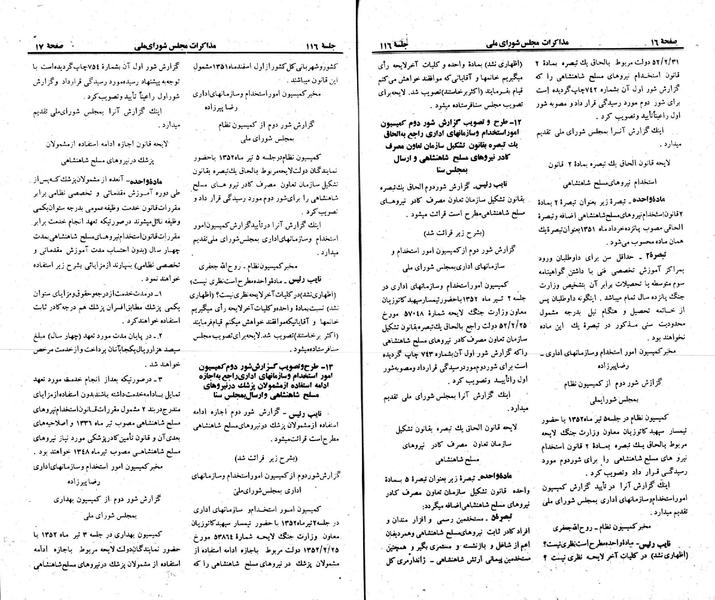 صفحهٔ ۱۶
مذاکرات مجلس شورای ملی
جلسهٔ ۱۱۶
۵۲/۲/۳۱ دولت مربوط بالحاق یک تبصره بمادهٔ ۲
قانون استخدام نیروهای مسلح شاهنشاهی را که
گزارش شور اول آن بشمارهٔ ۷۴۲ چاپ گردیده است
برای شور دوم مورد رسیدگی قرارداد و مصوبه شور
اول را عیناً تأیید وتصویب کرد.
اینک گزارش آنرا بمجلس شورای ملی تقدیم
میدارد.
لایحه قانون الحاق یک تبصره بمادهٔ ۲ قانون
استخدام نیروهای مسلح شاهنشاهی
مادهٔ واحده ـ تبصره زیر بعنوان تبصرهٔ ۲ بمادهٔ
۲ قانون استخدام نیروهای مسلح شاهنشاهی اضافه وتبصرهٔ
الحاقی مصوب پانزده خرداد ماه ۱۳۵۱ بعنوان تبصرهٔ یک
همان ماده محسوب می‌شود.
تبصرهٔ ۲ ـ حداقل سن برای داوطلبان ورود
بمراکز آموزش تخصصی فنی با داشتن گواهینامه
سوم متوسطه یا تحصیلات برابر آن بتشخیص وزارت
جنگ پانزده سال تمام میباشد. اینگونه داوطلبان پس
از خاتمه تحصیل و هنگام نیل بدرجه مشمول
محدودیت سنی مذکور در تبصرهٔ یک این ماده
نخواهند بود.
مخبر کمیسیون امور استخدام و سازمانهای اداری ـ
رضا پیرزاده
گزارش شور دوم از کمیسیون نظام
بمجلس شورایملی
کمیسیون نظام در جلسه ۵ تیر ماه ۱۳۵۲ با حضور
تیمسار سپهبد کاتوزیان معاون وزارت جنگ لایحه
مربوط بالحاق یک تبصره بمادهٔ ۲ قانون استخدام
نیروهای مسلح شاهنشاهی را برای شور دوم مورد
رسیدگی قرار داد وتصویب کرد.
اینک گزارش آنرا در تأیید گزارش کمیسیون
امور استخدام و سازمانهای اداری بمجلس شورای ملی
تقدیم میدارد.
مخبر کمیسیون نظام ـ روح‌الله جعفری
نایب رئیس ـ مادهٔ واحده مطرح است نظری نیست؟
(اظهاری نشد) در کلیات آخر لایحه نظری نیست ؟
(اظهاری نشد) بمادهٔ واحده و کلیات آخر لایحه رأی
میگیریم خانمها و آقایانی که موافقند خواهش می‌کنم
قیام بفرمایند (اکثر برخاستند) تصویب شد. لایحه برای
تصویب مجلس سنا فرستاده میشود.
۱۲ـ طرح و تصویب گزارش شور دوم کمیسیون
امور استخدام و سازمانهای اداری راجع به الحاق
یک تبصره بقانون تشکیل سازمان تعاون مصرف
کادر نیروهای مسلح شاهنشاهی و ارسال
بمجلس سنا
نایب رئیس ـ گزارش شور دوم الحاق یک تبصره
بقانون تشکیل سازمان تعاون مصرف کادر نیروهای
مسلح شاهنشاهی مطرح است قرائت میشود.
(بشرح زیر قرائت شد)
گزارش شور دوم از کمیسیون امور استخدام و
سازمانهای اداری بمجلس شورای ملی
کمیسیون امور استخدام و سازمانهای اداری در
جلسه ۲ تیر ماه ۱۳۵۲ با حضور تیمسار سپهبد کاتوزیان
معاون وزارت جنگ لایحه شمارهٔ ۵۷۰۱۸ مورخ
۵۲/۲/۲۵ دولت راجع بالحاق یک تبصره بقانون تشکیل
سازمان تعاون مصرف کادر نیروهای مسلح شاهنشاهی
را که گزارش شور اول آن بشمارهٔ ۷۴۳ چاپ گردیده
است برای شور دوم مورد رسیدگی قرارداد و مصوبه شور
اول را تأیید وتصویب کرد.
اینک گزارش آنرا بمجلس شورای ملی تقدیم
میدارد.
لایحه قانون الحاق یک تبصره بقانون تشکیل
سازمان تعاون مصرف کادر نیروهای
مسلح شاهنشاهی
مادهٔ واحده ـ تبصره زیر بعنوان تبصرهٔ ۵ بمادهٔ
واحده قانون تشکیل سازمان تعاون مصرف کادر
نیروهای مسلح شاهنشاهی اضافه میگردد:
تبصرهٔ ۵ ـ مستخدمین رسمی و افزار مندان و
افراد کادر ثابت نیروهای مسلح شاهنشاهی و همردیفان
اعم از شاغل و بازنشسته و مستمری بگیر و همچنین
مستخدمین پیمانی ارتش شاهنشاهی ـ ژاندارمری کل
جلسهٔ ۱۱۶
مذاکرات مجلس شورای ملی
صفحهٔ ۱۷
کشور و شهربانی کل کشور از اول اسفند ماه ۱۳۵۱ مشمول
این قانون میباشند.
مخبر کمیسیون امور استخدام و سازمانهای اداری
رضا پیرزاده
گزارش شور دوم از کمیسیون نظام
بمجلس شورای ملی
کمیسیون نظام در جلسه ۵ تیر ماه ۱۳۵۲ با حضور
نمایندگان دولت لایحه مربوط بالحاق یک تبصره بقانون
تشکیل سازمان تعاون مصرف کادر نیرو های مسلح
شاهنشاهی را برای شور دوم مورد رسیدگی قرار داد و
تصویب کرد.
اینک گزارش آنرا در تأیید گزارش کمیسیون امور
استخدام و سازمانهای اداری بمجلس شورای ملی تقدیم
میدارد.
مخبر کمیسیون نظام ـ روح‌الله جعفری
نایب رئیس ـ مادهٔ واحده مطرح است نظری نیست؟
(اظهاری نشد) در کلیات آخر لایحه نظری نیست؟ (اظهاری
نشد) نسبت بمادهٔ واحده و کلیات آخر لایحه رأی میگیریم
خانمها و آقایانیکه موافقند خواهش میکنم قیام فرمایند
(اکثر برخاستند) تصویب شد. لایحه برای تصویب مجلس
سنا فرستاده میشود.
۱۳ـ طرح و تصویب گزارش شور دوم کمیسیون
امور استخدام و سازمانهای اداری راجع به اجازه
ادامه استفاده از مشمولان پزشک در نیروهای
مسلح شاهنشاهی و ارسال بمجلس سنا
نایب رئیس ـ گزارش شور دوم اجازه ادامه
استفاده از مشمولان پزشک در نیروهای مسلح شاهنشاهی
مطرح است قرائت میشود.
(بشرح زیر قرائت شد)
گزارش شور دوم از کمیسیون امور استخدام و سازمانهای
اداری بمجلس شورای ملی
کمیسیون امور استخدام و سازمانهای اداری
در جلسه ۲ تیر ماه ۱۳۵۲ با حضور تیمسار سپهبد کاتوزیان
معاون وزارت جنگ لایحه شمارهٔ ۵۳۸۶۴ مورخ
۱۳۵۲/۲/۲۵ دولت مربوط باجازه ادامه استفاده از
مشمولان پزشک در نیرو های مسلح شاهنشاهی را که
گزارش شور اول آن بشمارهٔ ۷۵۴ چاپ گردیده است با
توجه به پیشنهاد رسیده مورد رسیدگی قرارداد و گزارش
شور اول را عیناً تأیید وتصویب کرد.
اینک گزارش آنرا بمجلس شورای ملی تقدیم
میدارد.
لایحه قانون اجازه ادامه استفاده از مشمولان
پزشک در نیروهای مسلح شاهنشاهی
مادهٔ واحده ـ آنعده از مشمولان پزشک که پس از
طی دوره آموزش مقدماتی و تخصصی نظامی برابر
مقررات قانون خدمت وظیفه عمومی بدرجه ستوان یکمی
وظیفه نائل میشوند در صورتیکه تعهد انجام خدمت برابر
مقررات قانون استخدام نیروهای مسلح شاهنشاهی بمدت
چهار سال (بدون احتساب مدت آموزش مقدماتی و
تخصصی نظامی) بسپارند از مزایائی بشرح زیر استفاده
خواهند نمود.
۱ـ در مدت خدمت از درجه و حقوق و مزایای ستوان
یکمی پزشک مطابق افسران پزشک هم درجه کادر ثابت
استفاده خواهند کرد.
۲ـ در پایان مدت مورد تعهد (چهار سال) مبلغ
هزار ریال یکجا بآنان پرداخت و از خدمت مرخص
خواهند شد.
۳ـ در صورتیکه بعد از انجام خدمت مورد تعهد
تمایل به ادامه خدمت داشته باشند بدون استفاده از مزایای
مندرج در بند ۲ مشمول مقررات قانون استخدام نیروهای
مسلح شاهنشاهی مصوب تیر ماه ۱۳۳۶ و اصلاحیه‌های
بعدی آن و قانون تأمین کادر پزشکی مورد نیاز نیروهای
مسلح شاهنشاهی مصوب تیر ماه ۱۳۴۸ خواهند بود.
مخبر کمیسیون امور استخدام و سازمانهای اداری
رضا پیرزاده
گزارش شور دوم از کمیسیون بهداری
بمجلس شورای ملی
کمیسیون بهداری در جلسه ۳ تیر ماه ۱۳۵۲ با
حضور نمایندگان دولت لایحه مربوط باجازه ادامه
استفاده از مشمولان پزشک در نیروهای مسلح شاهنشاهی